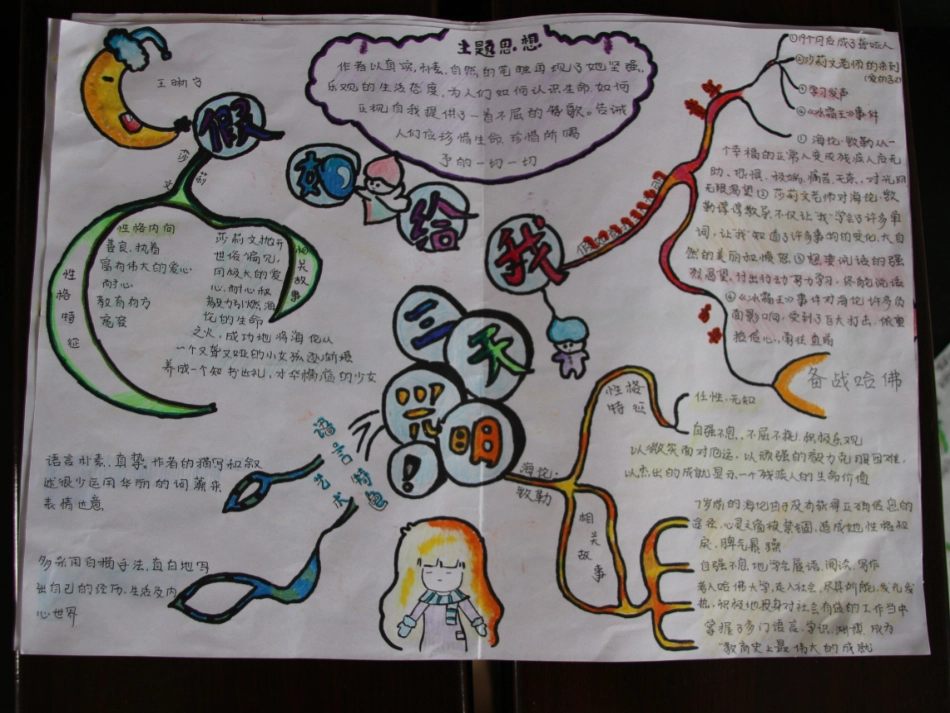 主题思想
作者以真实、朴素、自然的笔触再现了她坚强、
乐观的生活态度,为人们如何认识生命,如何
正视自我提供了一首不屈的赞歌。告诫
人们应珍惜生命,珍惜所赐
予的一切一切
假
如
给
我
三
天
光
明
!
莎莉文
性格特征
性格内向
善良、执着
富有伟大的爱心
耐心
教育有方
高变
相关故事
莎莉文抛开
世俗偏见,
用极大的爱
心、耐心和
毅力引燃海
伦的生命
之火,成功地将海伦从
一个又聋又哑的小女孩
养成一个知书达礼,才华横溢的少女
语言艺术特色
语言朴素、真挚。作者的描写和叙
述很少运用华丽的词藻来
表情达意
多采用白描手法,直白地写
出自己的经历、生活及内
心世界
①19个月后成了聋哑人
②莎莉文老师的来到
③学习发声
④《冰霜王》事件
①海伦·凯勒从一
个幸福的正常人变成残疾人后无
助、恐惧、
无限渴望②莎莉文老师对海伦·凯
勒谆谆教导,不仅让“我”学会了许多单
词,让“我”知道了许多事物的变化,大自
然的美丽和
烈渴望,付出行动努力学习,终能说话
④《冰霜王》事件对海伦许多负
面影响,受到了巨大打击,依重
拾信心,勇往直前
备战哈佛
海伦·
凯勒
性格
特征
任性、无知
自强不息、不屈不挠、积极乐观
以微笑面对厄运,以顽强的毅力克服困难,
以杰出的成就显示一个残疾人的生命价值
相关故事
7岁前的海伦由于没有获得正确信息的
途径,心灵之窗被禁锢,造成她性格粗
戾、脾气暴躁
自强不息地学会盲语、阅读、写作
考入哈佛大学,走入社会,尽其所能,发光发
热,积极地投身对社会有益的工作当中
掌握了多门语言,学识渊博,成为
教育史上最伟大的成就